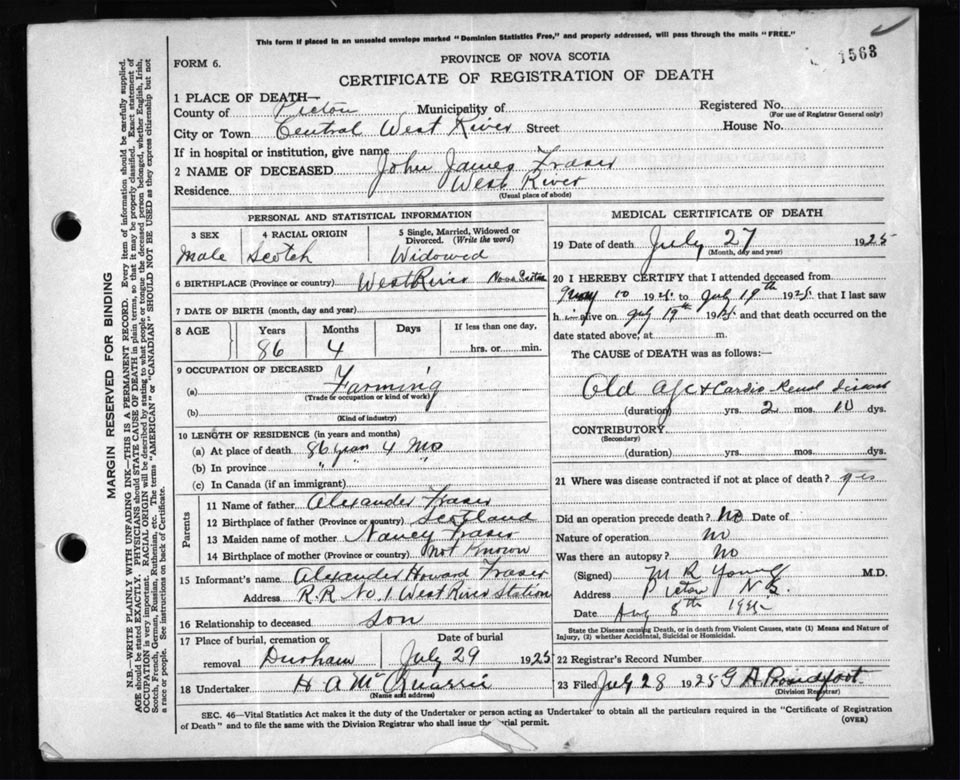 This form if placed in an unsealed envelope marked "Dominion Statistics Free," and properly addressed, will pass through the mails "FREE."
1563
FORM 6.
PROVINCE OF NOVA SCOTIA
CERTIFICATE OF REGISTRATION OF DEATH
MARGIN RESERVED FOR BINDING
N.B.—WRITE PLAINLY WITH UNFADING INK—THIS IS A PERMANENT RECORD. Every item of information should be carefully supplied.
AGE should be stated EXACTLY. PHYSICIANS should STATE CAUSE OF DEATH in plain terms, so that it may be properly classified. Exact statement of
OCCUPATION is very important. RACIAL ORIGIN will be described by stating to what people or tongue the deceased person belonged, whether English, Irish,
Scotch, French, German, Russian, Ruthenian, etc. The terms "AMERICAN" or "CANADIAN" SHOULD NOT BE USED as they express citizenship but not
a race or people. See instructions on back of Certificate.
1 PLACE OF DEATH—
County of Pictou Municipality of Registered No.
(For use of Registrar General only)
City or Town Central West River Street House No.
If in hospital or institution, give name
2 NAME OF DECEASED John James Fraser
Residence West River
(Usual place of abode)
PERSONAL AND STATISTICAL INFORMATION
3 SEX 4 RACIAL ORIGIN 5 Single, Married, Widowed or Divorced. (Write the word)
Male Scotch Widowed
6 BIRTHPLACE (Province or country) West River Nova Scotia
7 DATE OF BIRTH (month, day and year)
8 AGE Years Months Days If less than one day,
86 4 hrs. or min.
9 OCCUPATION OF DECEASED
(a) Farming
(Trade or occupation or kind of work)
(b)
(Kind of industry)
10 LENGTH OF RESIDENCE (in years and months)
(a) At place of death 86 years 4 Mo
(b) In province " " "
(c) In Canada (if an immigrant)
Parents
11 Name of father Alexander Fraser
12 Birthplace of father (Province or country) Scotland
13 Maiden name of mother Nancy Fraser
14 Birthplace of mother (Province or country) Not Known
15 Informant's name Alexander Howard Fraser
Address R.R No. 1 West River Station
16 Relationship to deceased Son
17 Place of burial, cremation or removal Durham Date of burial July 29 1925
18 Undertaker H A McQuarrie
(Name and address)
MEDICAL CERTIFICATE OF DEATH
19 Date of death July 27 1925
(Month, day and year)
20 I HEREBY CERTIFY that I attended deceased from
May 10 192 to July 19th 192 that I last saw
h alive on July 19th 192 and that death occurred on the
date stated above, at m.
The CAUSE of DEATH was as follows:—
Old Age & Cardio-Renal Disease
(duration) yrs. 2 mos. 10 dys.
CONTRIBUTORY
(Secondary)
(duration) yrs. mos. dys.
21 Where was disease contracted if not at place of death? yes
Did an operation precede death? No Date of
Nature of operation no
Was there an autopsy? no
(Signed) M R Young M.D.
Address Pictou N S.
Date Aug 8th 192
State the Disease causing Death, or in death from Violent Causes, state (1) Means and Nature of
Injury, (2) whether Accidental, Suicidal or Homicidal.
22 Registrar's Record Number
23 Filed July 28 1925 G A Proudfoot
(Division Registrar)
SEC. 46—Vital Statistics Act makes it the duty of the Undertaker or person acting as Undertaker to obtain all the particulars required in the "Certificate of Registration
of Death" and to file the same with the Division Registrar who shall issue the burial permit.
(OVER)